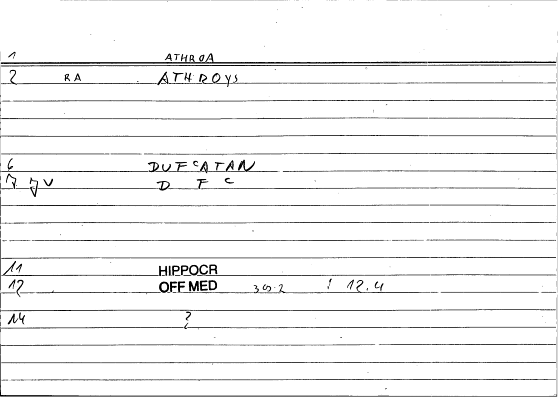 1 ATHROA
2 RA ATHROYS
6 DUFCATAN
7 V D F C
11 HIPPOCR
12 OFF MED 12.4
14 ?